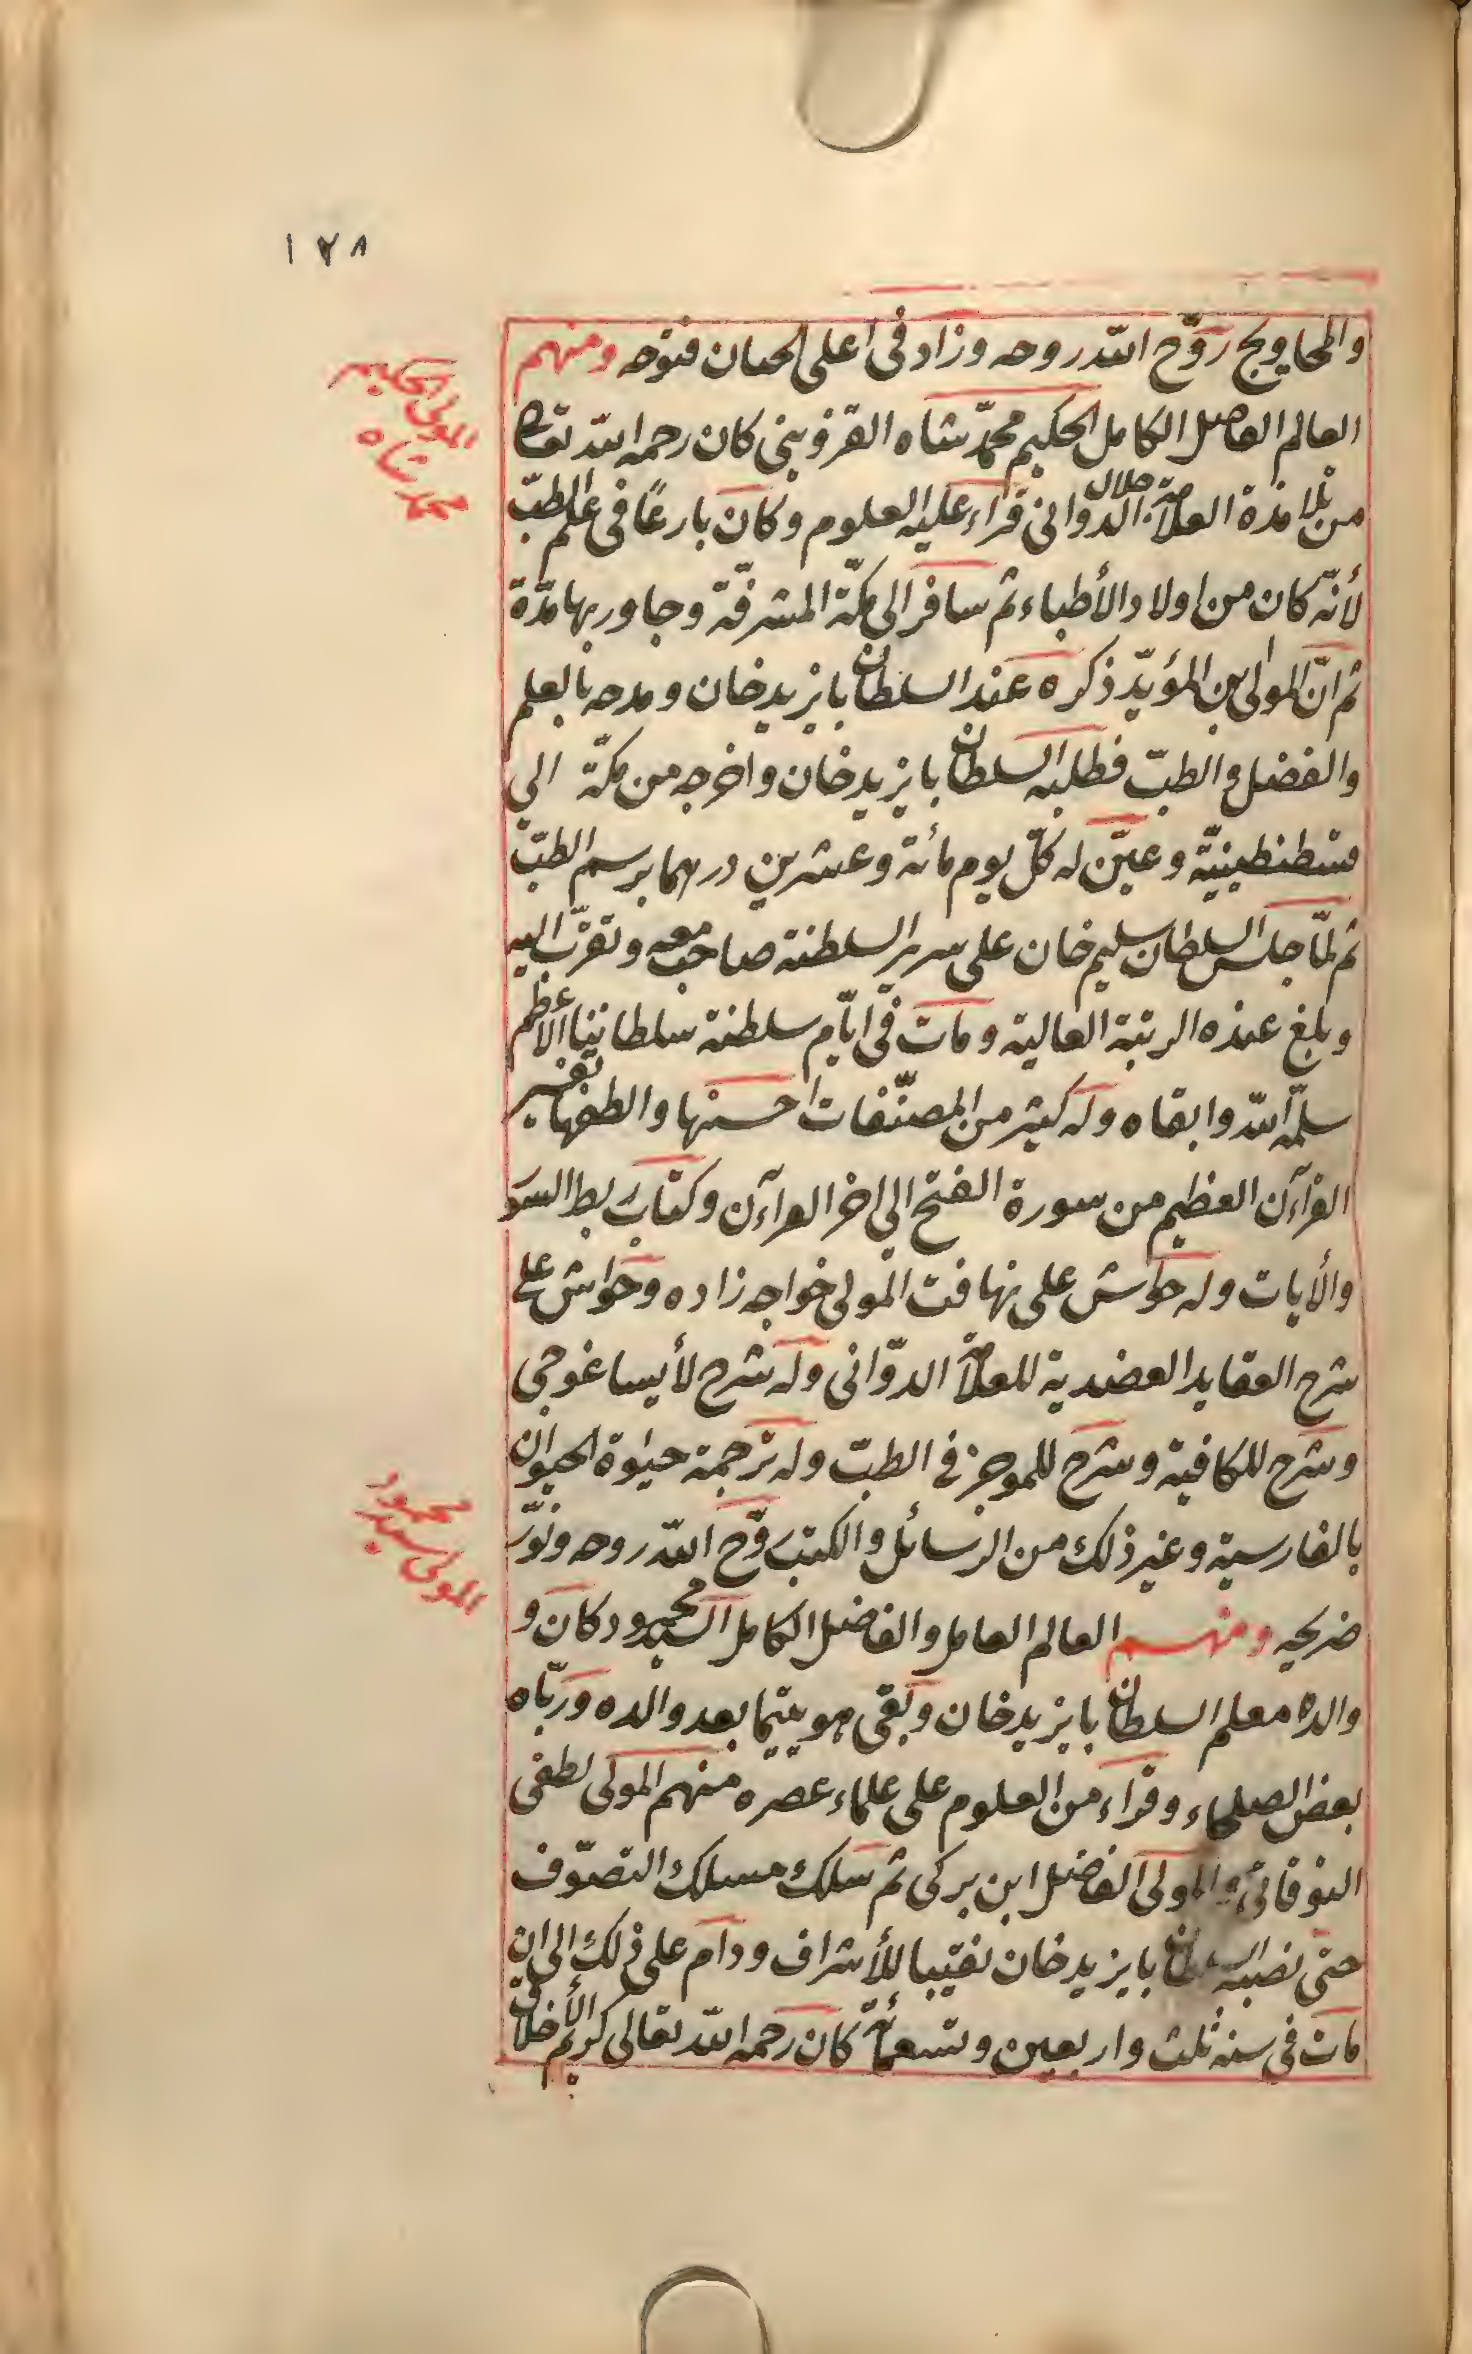 ١٧٨
والمحاويج روّح الله روحه وزاد فى اعلى الجنان فتوحه ومنهم
المولى الحكيم
محمد شاه
العالم الفاضل الكامل الحكيم محمّد شاه القزوينى كان رحمه الله تعالى
من تلامذة العلاّمة جلال الدوانى قراء عليه العلوم وكان بارعًا فى علم الطبّ
لأنّه كان من اولاد الأطباء ثم سافر الى مكّة المشرفّة وجاور بها مدّة
ثم انّ المولى ابن المؤيّد ذكره عند السلطان بايزيد خان ومدحه بالعلم
والفضل والطبّ فطلبه السلطان بايزيد خان واخرجه من مكّة الى
قسطنطينيّة وعيّن له كلّ يوم مائة وعشرين درهما برسم الطبّ
ثم لمّا جلس السلطان سليم خان على سرير السلطنة صاحب معه وتقرّب اليه
وبلغ عنده الرتبة العالية ومات فى ايّام سلطنة سلطاننا الأعظم
سلّمه الله وابقاه وله كثير من المصنّفات احسنها والطفها تفسير
القرآن العظيم من سورة الفتح الى اخر القرآن وكتاب ربط السور
والأيات وله حواش على تهافت المولى خواجه زاده وحواش على
شرح العقايد العضدية للعلاّمة الدوّانى وله شرح لأيساغوجى
وشرح للكافية وشرح للموجز فى الطبّ وله ترجمة حيوة الحيوان
بالفارسية وغير ذلك من الرسائل والكتب روّح الله روحه ونوّر
المولى سيد
محمود
ضريحه ومنهم العالم العامل والفاضل الكامل السيد محمود كان و
والده معلم السلطان بايزيد خان وبقى هو يتيما بعد والده وربّاه
بعض الصلحاء وقراء من العلوم على علماء عصره منهم المولى لطفى
التوقاتى والمولى الفاضل ابن بركى ثم سلك مسلك التصوّف
حتى نصبه السلطان بايزيد خان نقيبا للأشراف ودام على ذلك الى ان
مات فى سنه ثلث واربعين وتسعمائة كان رحمه الله تعالى كريم الأخلاق